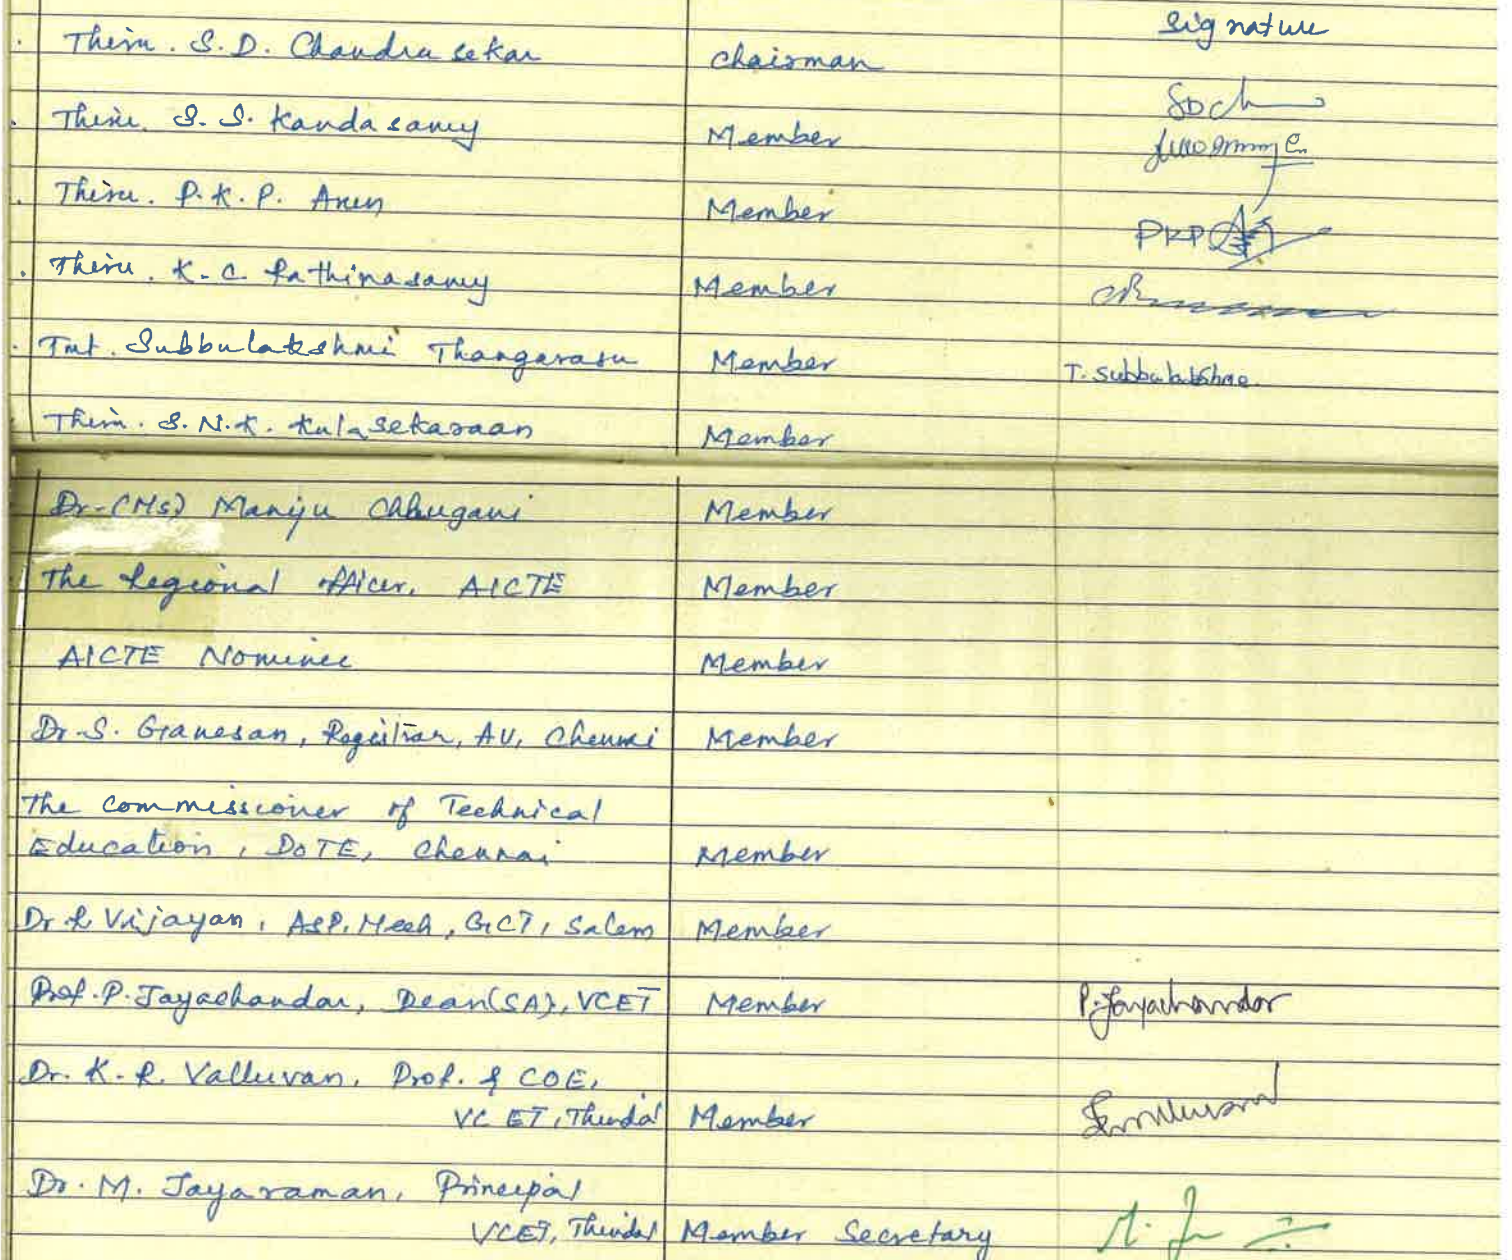 Signature
Thiru. S.D. Chandrasekar Chairman SDCh
Thiru. S.S. Kandasamy Member
Thiru. P.K.P. Arun Member PKP
Thiru. K.C. Rathinasamy Member
Tmt. Subbulakshmi Thangarasu Member T. Subbulakshme.
Thiru. S.N.K. Kulasekaraan Member
Dr.(Ms) Manju Chhugani Member
The Regional officer, AICTE Member
AICTE Nominee Member
Dr.S. Ganesan, Registrar, AU, Chennai Member
The commissioner of Technical
Education, DoTE, Chennai Member
Dr R Vijayan, AsP. Mech, GCT, Salem Member
Prof. P. Jayachandar, Dean(SA), VCET Member P. Jayachandar
Dr. K.R. Valluvan, Prof. & COE,
VCET, Thindal Member
Dr. M. Jayaraman, Principal
VCET, Thindal Member Secretary